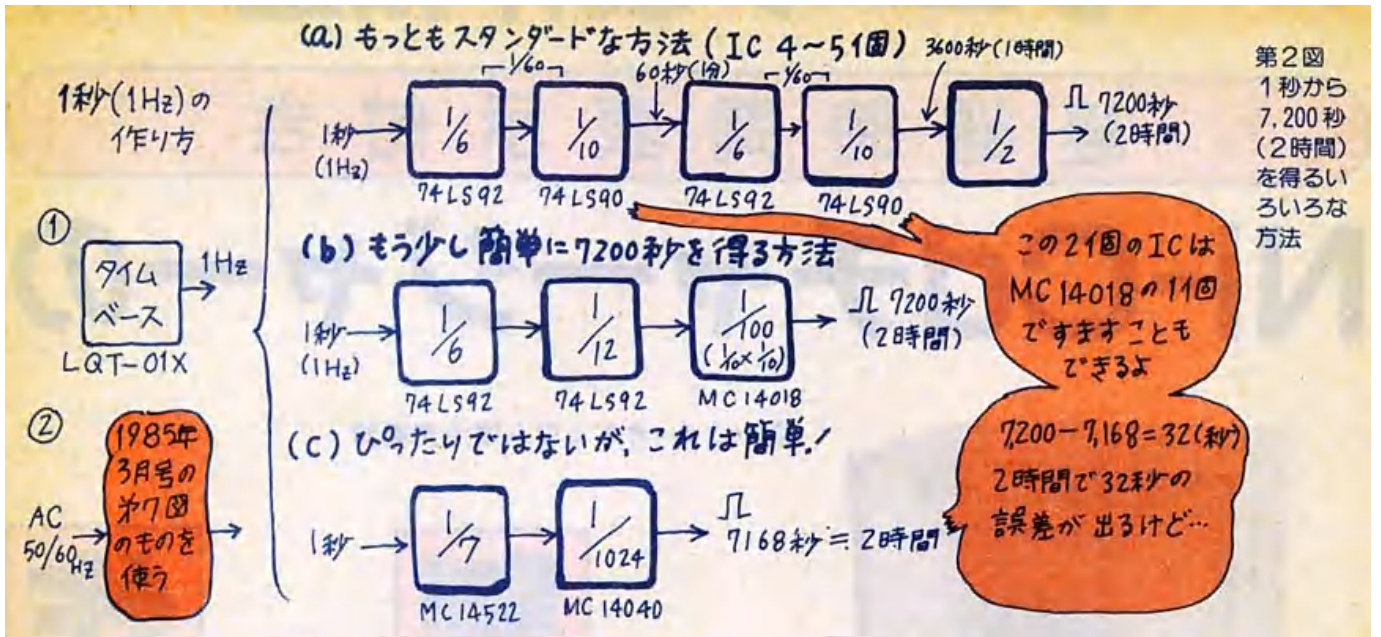 第2図
1秒から
7,200秒
(2時間)
を得るい
ろいろな
方法
1秒(1Hz)の
作り方
①
タイム
ベース
1Hz
LQT-01X
②
AC
50/60Hz
1985年
3月号の
第7図
のものを
使う
(a) もっともスタンダードな方法 (IC 4〜5個)
1/60
60秒(1分)
1/60
3600秒(1時間)
1秒
(1Hz)
1/6
1/10
1/6
1/10
1/2
7200秒
(2時間)
74LS92
74LS90
74LS92
74LS90
(b) もう少し簡単に7200秒を得る方法
1秒
(1Hz)
1/6
1/12
1/100
(1/10×1/10)
7200秒
(2時間)
74LS92
74LS92
MC14018
(C) ぴったりではないが、これは簡単!
1秒
1/7
1/1024
7168秒≒2時間
MC14522
MC14040
この2個のICは
MC14018の1個
ですますことも
できるよ
7,200-7,168=32(秒)
2時間で32秒の
誤差が出るけど…